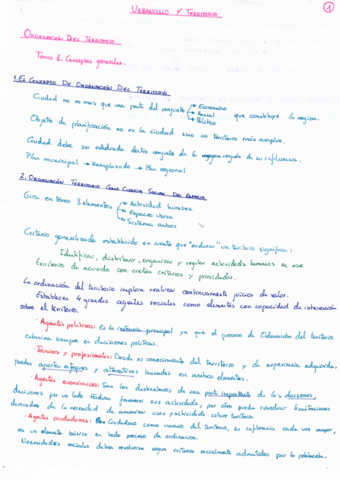 URBANISMO Y TERRITORIO
1
ORDENACIÓN DEL TERRITORIO
Tema 1. Conceptos generales.
1. EL CONCEPTO DE ORDENACIÓN DEL TERRITORIO
Ciudad no es mas que una parte del conjunto → Económico
→ Social que constituye la region.
→ Político
Objeto de planificación no es la ciudad sino un territorio más amplio.
Ciudad debe ser estudiada dentro conjunto de la region de su influencia.
Plan municipal → Reemplazado → Plan regional
2. ORDENACIÓN TERRITORIO COMO CIENCIA SOCIAL DEL ESPACIO
Gira en torno 3 elementos → Actividad humana
→ Espacio
→ Sistema ambos
Criterio generalizado establecido en cuanto que "ordenar" un territorio significa:
Identificar, distribuir, organizar y regular actividades humanas en ese
territorio de acuerdo con ciertos criterios y prioridades.
La ordenación del territorio implica realizar continuamente juicios de valor.
Establece 4 grandes agentes sociales como elementos con capacidad de intervención
sobre el territorio.
· Agentes políticos: Es la instancia principal ya que el proceso de Ordenación del territorio
culmina siempre en decisiones políticas.
· Técnicos y profesionales: Desde su conocimiento del territorio y la experiencia adquirida,
pueden aportar criterios y alternativas basadas en ambos elementos.
· Agentes económicos: Son los destinatarios de una parte importante de las decisiones,
decisiones por un lado fomentan sus actividades, por otro pueden limitaciones
derivadas de la necesidad de usos y actividades sobre territorio.
· Agentes ciudadanos: Ciudadano como usuario del territorio, su influencia cada vez mayor,
es un elemento básico en todo proceso de ordenación.
Necesidades sociales deben resolverse segun criterios socialmente admitidos por la población.